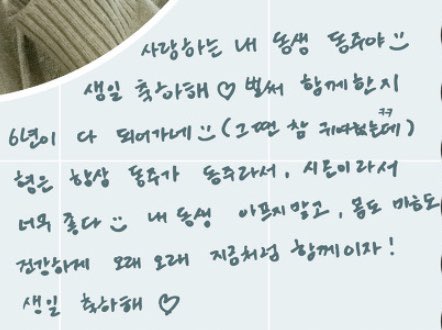 사랑하는 내 동생 동주야 :)
생일 축하해 ♡ 벌써 함께한지
6년이 다 되어가네 :) (그땐 참 귀여웠는데) ㅋㅋ
형은 항상 동주가 동주라서, 시온이라서
너무 좋다 :) 내 동생 아프지말고, 몸도 마음도
건강하게 오래 오래 지금처럼 함께이자!
생일 축하해 ♡